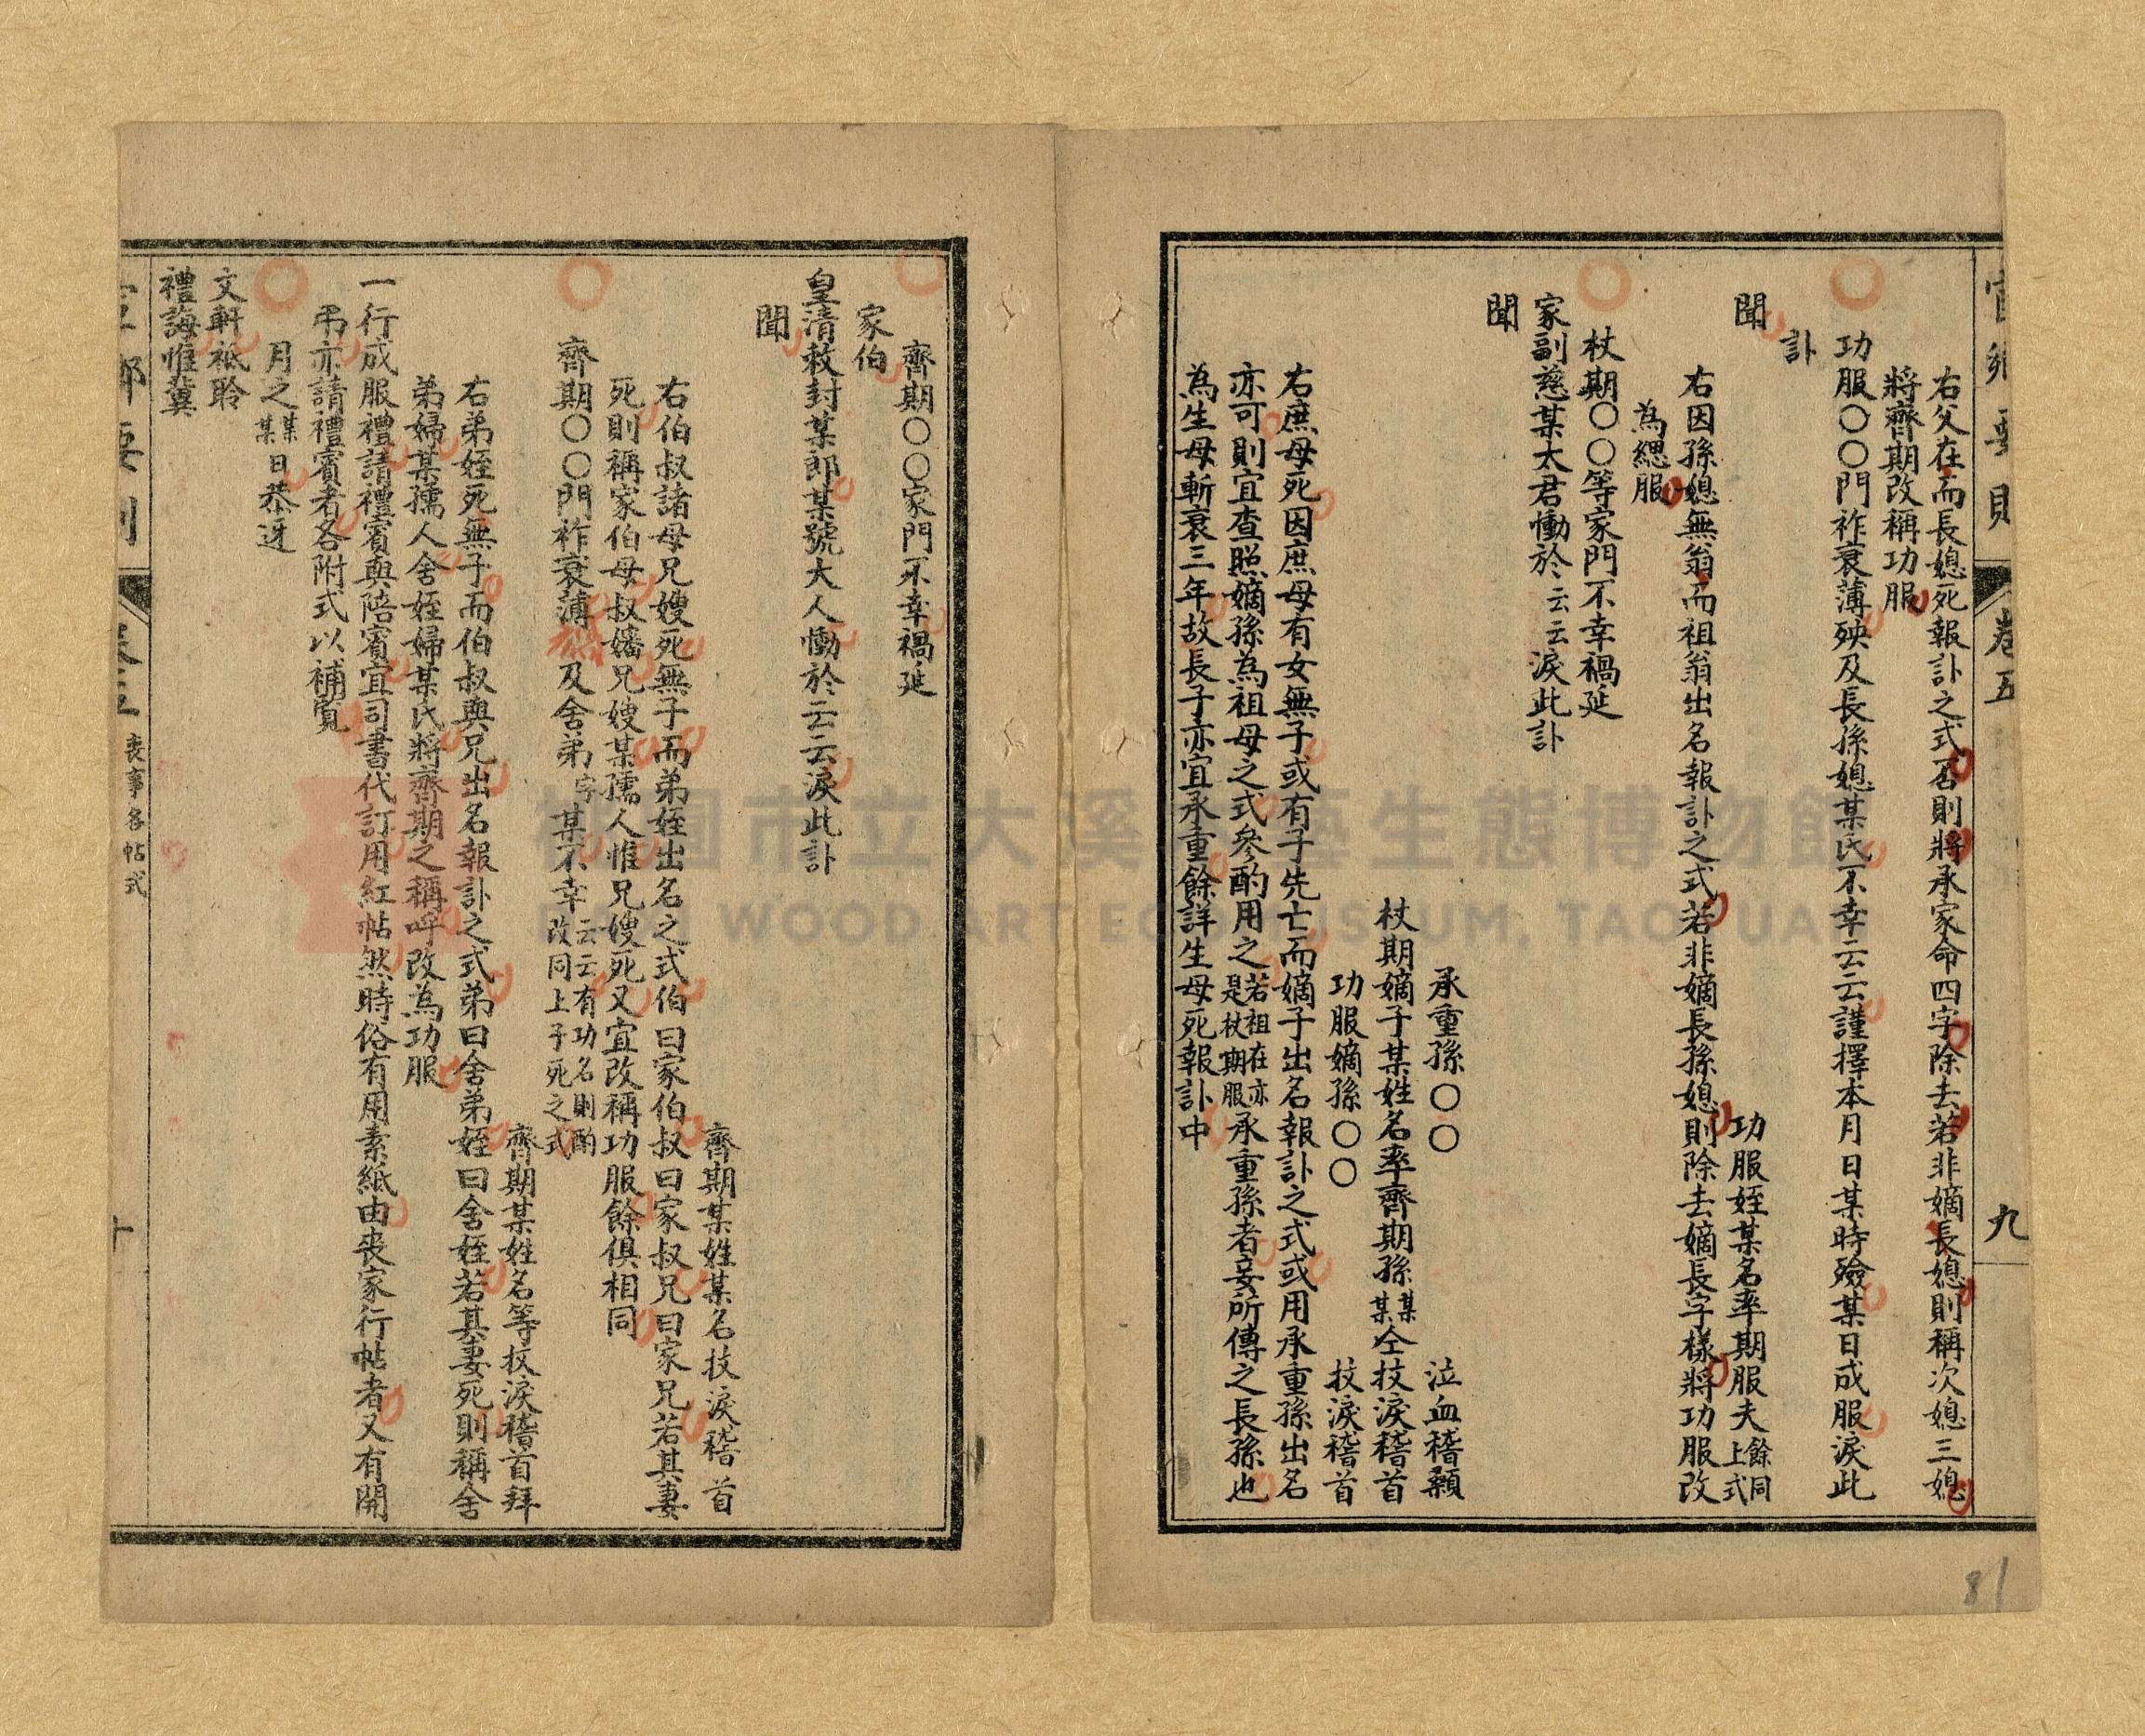 卷五
九
右父在而長媳死報訃之式否則將承家命四字除去若非嫡長媳則稱次媳三媳
將齊期改稱功服
功服〇〇門祚衰薄殃及長孫媳某氏不幸云云謹擇本月日某時殮某日成服淚此
訃
聞
功服姪某名率期服夫餘同上式
右因孫媳無翁而祖翁出名報訃之式若非嫡長孫媳則除去嫡長字樣將功服改
為緦服
杖期〇〇等家門不幸禍延
家副慈某太君慟於云云淚此訃
聞
承重孫〇〇 泣血稽顙
杖期嫡子某姓名率齊期孫某某仝抆淚稽首
功服嫡孫〇〇 抆淚稽首
右庶母死因庶母有女無子或有子先亡而嫡子出名報訃之式或用承重孫出名
亦可則宜查照嫡孫為祖母之式參酌用之若祖在亦是杖期服承重孫者妾所傳之長孫也
為生母斬衰三年故長子亦宜承重餘詳生母死報訃中
81
齊期〇〇家門不幸禍延
家伯
皇清敕封某郎某號大人慟於云云淚此訃
聞
齊期某姓某名抆淚稽首
右伯叔諸母兄嫂死無子而弟姪出名之式伯曰家伯叔曰家叔兄曰家兄若其妻
死則稱家伯母叔嬸兄嫂某孺人惟兄嫂死又宜改稱功服餘俱相同
齊期〇〇門祚衰薄及舍弟字某不幸云云有功名則酌改同上子死之式
齊期某姓名等抆淚稽首拜
右弟姪死無子而伯叔與兄出名報訃之式弟曰舍弟姪曰舍姪若其妻死則稱舍
弟婦某孺人舍姪婦某氏將齊期之稱呼改為功服
一行成服禮請禮賓與陪賓宜司書代訂用紅帖然時俗有用素紙由喪家行帖者又有開
弔亦請禮賓者各附式以補覽
月之某某日恭迓
文軒祗聆
禮誨惟冀
喪事各帖式
十
桃園市立大溪木藝生態博物館
DAXI WOOD ART ECOMUSEUM, TAOYUAN